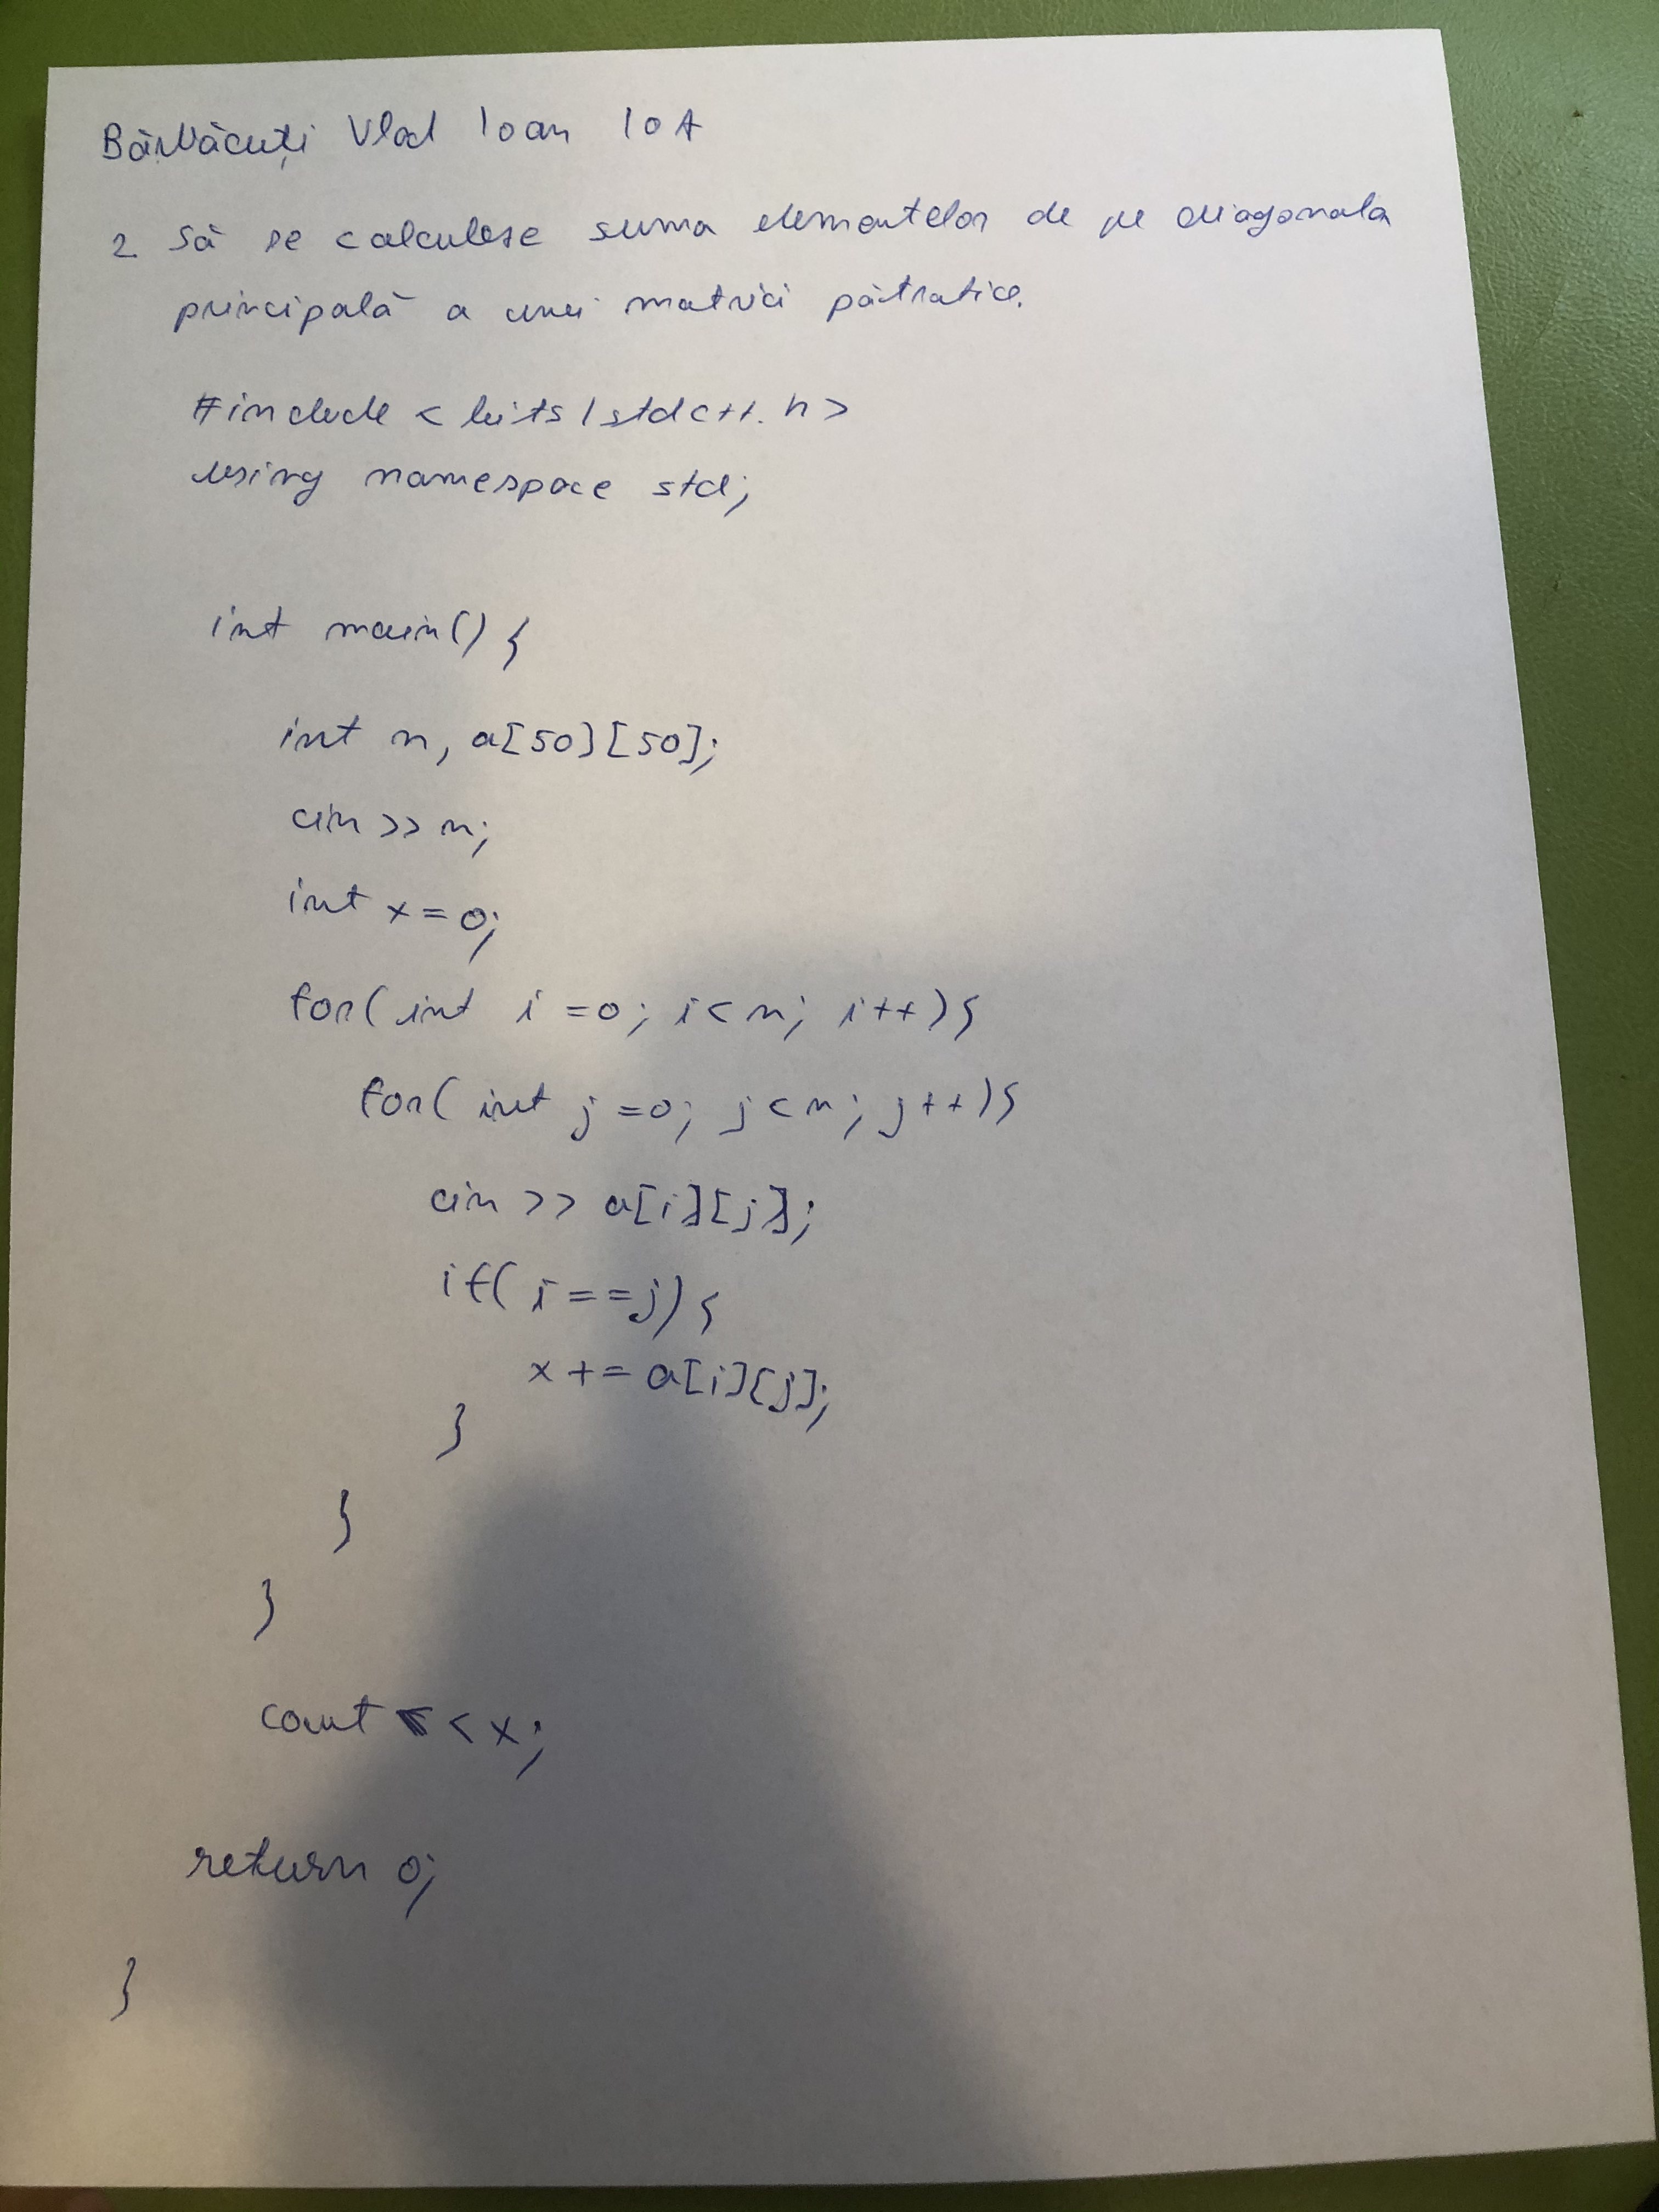 Bărbăcuți Vlad Ioan 10A
2 Să se calculese suma elementelor de pe diagonala
principală a unei matrici pătratice.
#include <bits/stdc++.h>
using namespace std;
int main() {
int n, a[50][50];
cin >> n;
int x = 0;
for( int i = 0; i < n; i++ ){
for( int j = 0; j < n; j++ ){
cin >> a[i][j];
if( i == j ) {
x += a[i][j];
}
}
}
cout << x;
return 0;
}